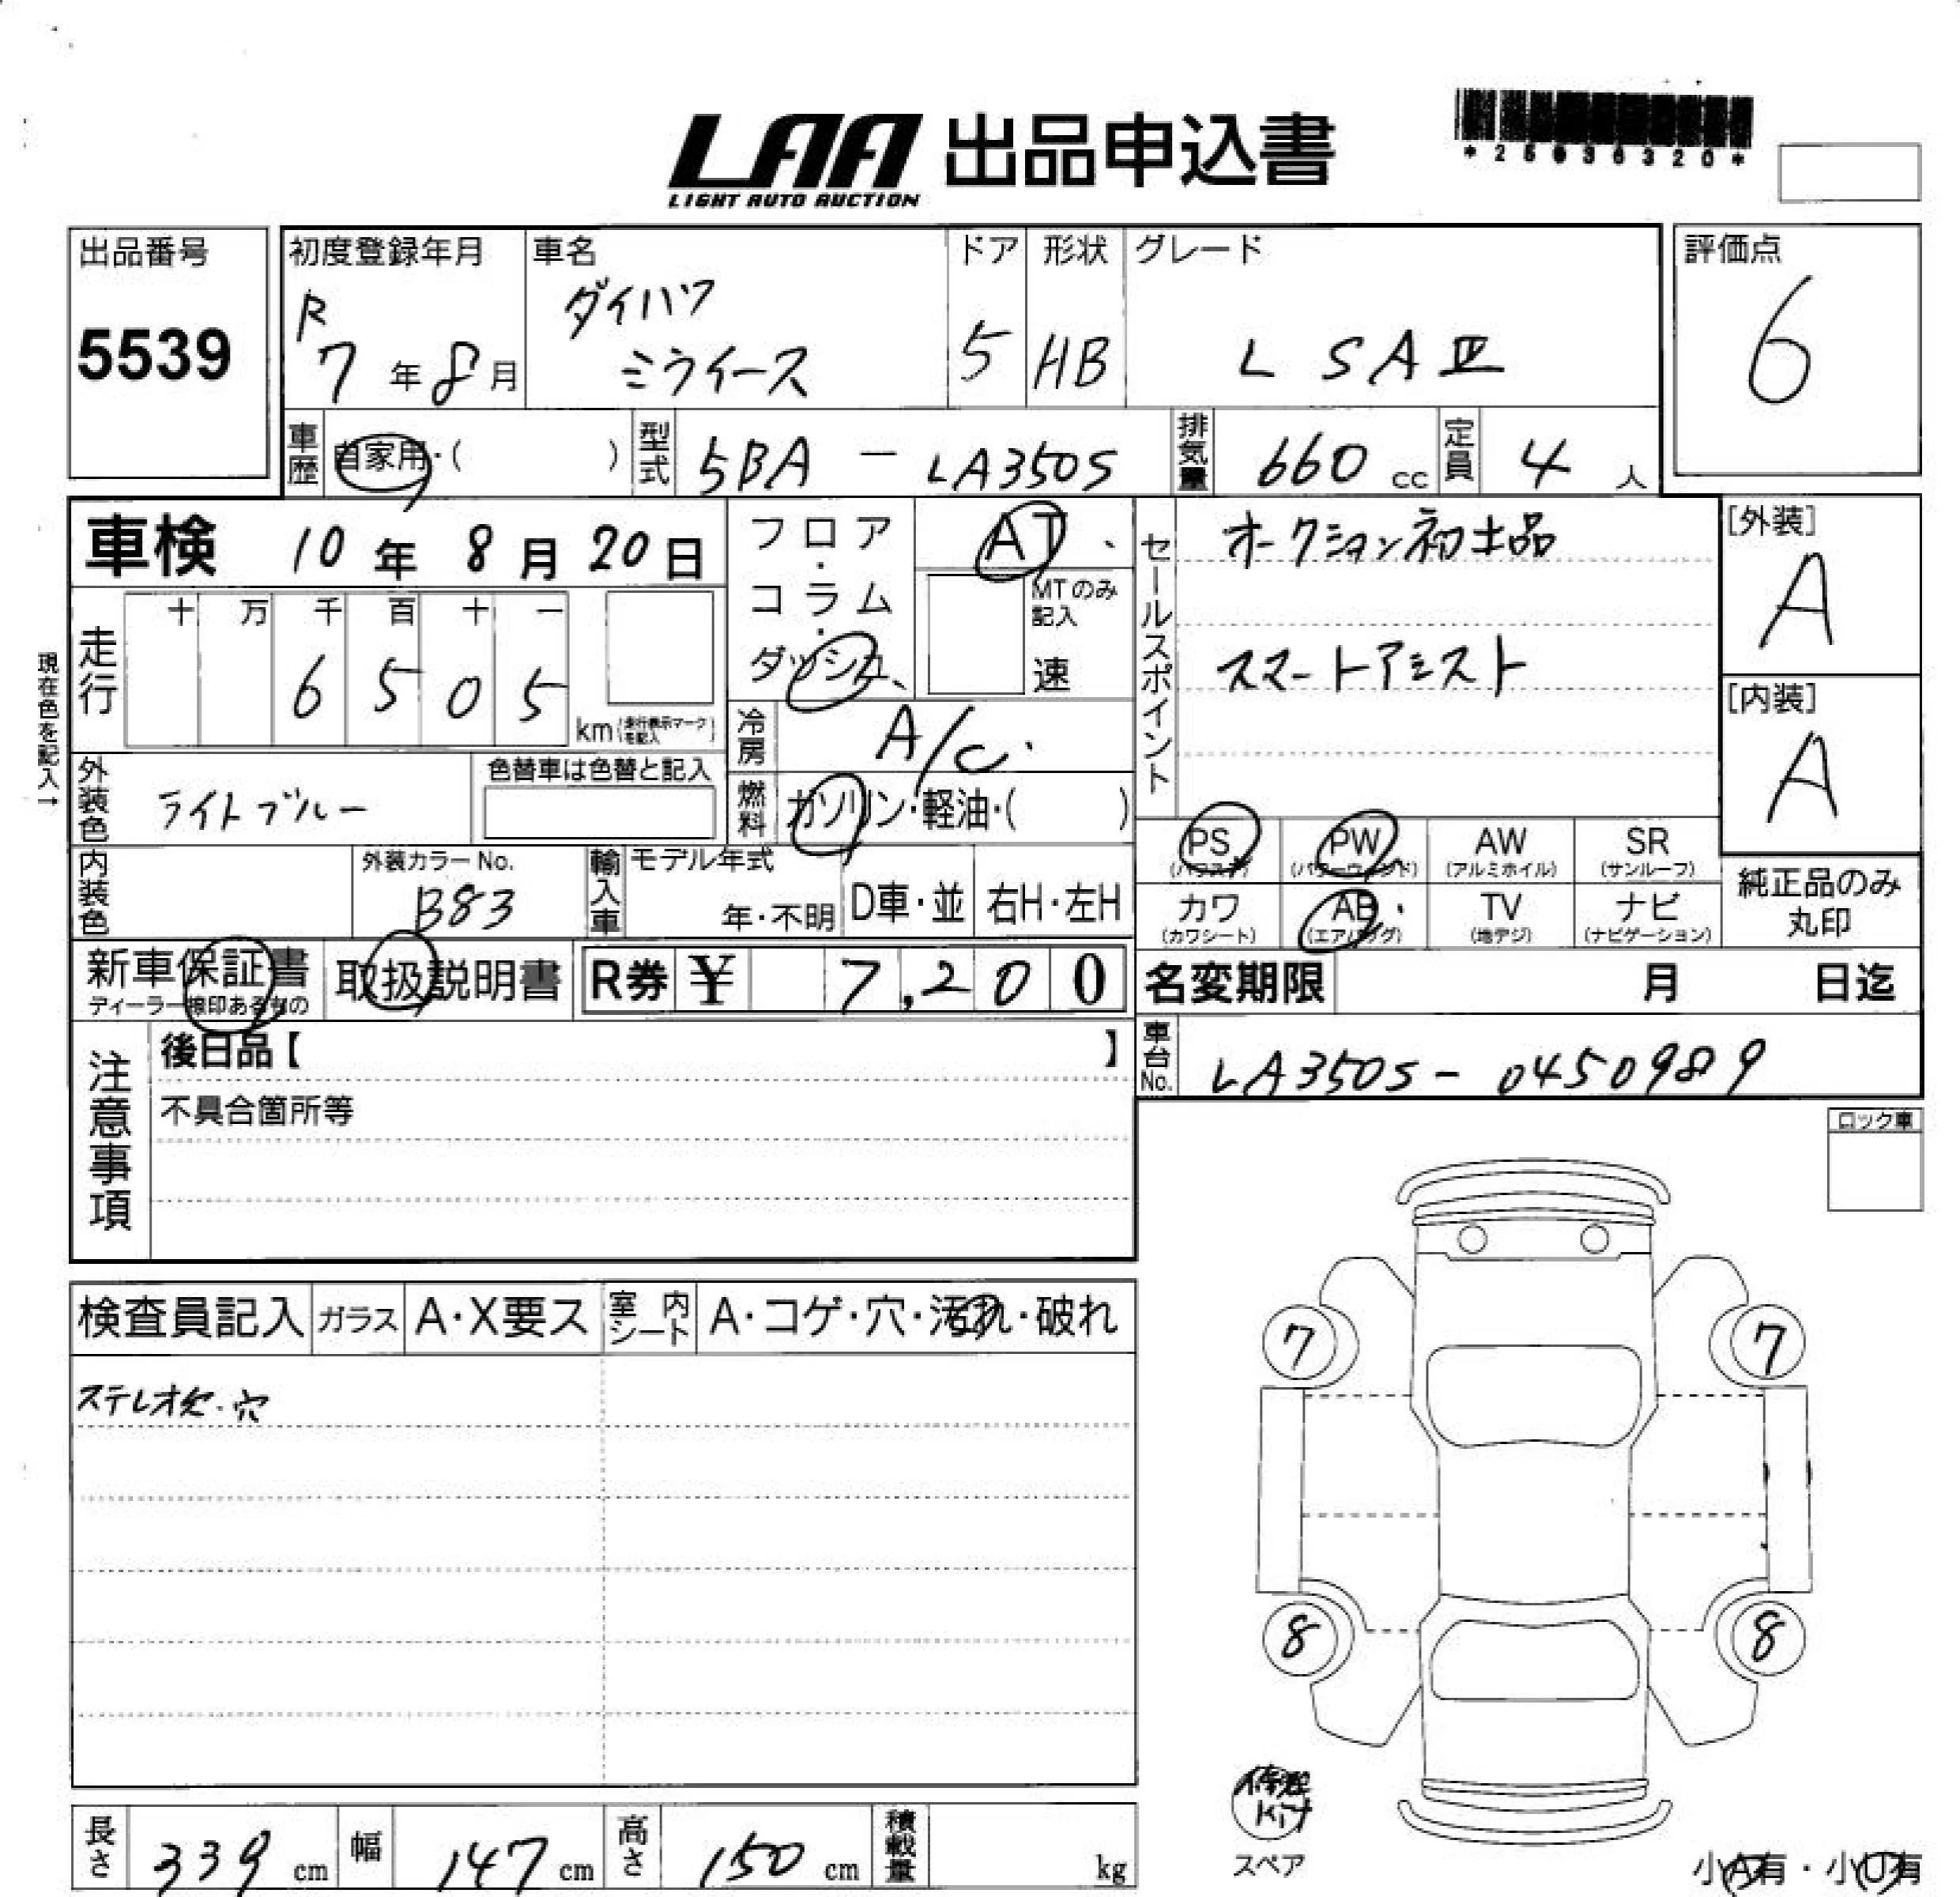 LAA 出品申込書
LIGHT AUTO AUCTION
出品番号
5539
初度登録年月
R
7年8月
車名
ダイハツ
ミライース
ドア
5
形状
HB
グレード
L SAⅢ
評価点
6
車歴
自家用・( )
型式
5BA - LA350S
排気量
660 cc
定員
4 人
車検 10年 8月 20日
現在色を記入→
走行
十 万 千 百 十 一
6 5 0 5
km (走行表示マークを記入)
フロア・コラム・ダッシュ
AT
MTのみ記入
速
冷房
A/C
燃料
ガソリン・軽油・( )
セールスポイント
オークション初出品
スマートアシスト
[外装]
A
[内装]
A
外装色
ライトブルー
色替車は色替と記入
内装色
外装カラーNo.
B83
輸入車
モデル年式
年・不明
D車・並
右H・左H
PS
(パワステ)
PW
(パワーウィンド)
AW
(アルミホイル)
SR
(サンルーフ)
カワ
(カワシート)
AB
(エアバッグ)
TV
(地デジ)
ナビ
(ナビゲーション)
純正品のみ
丸印
新車保証書
ディーラー捺印あるもの
取扱説明書
R券 ¥ 7,200
名変期限 月 日迄
車台No.
LA350S- 0450989
注意事項
後日品【 】
不具合箇所等
ロック車
検査員記入
ガラス
A・X要ス
室内シート
A・コゲ・穴・汚れ・破れ
ステレオ欠・穴
7
7
8
8
修理
Kit
スペア
長さ
339 cm
幅
147 cm
高さ
150 cm
積載量
kg
小A有・小U有